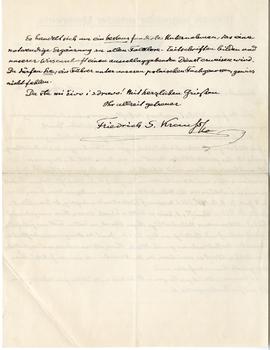 Es handelt sich um ein bestens fundirtes Unternehmen, das eine
notwendige Ergänzung zu allen Folklore-Zeitschriften bilden und
unserer Wissenschaft einen ausschlaggebenden Dienst erweisen wird.
Da dürfen Sie, als Führer unter unseren polnischen Fachgenossen, gewiss
nicht fehlen.
Da ste mi živo i zdravo! Mit herzlichen Grüssen
Ihr allzeit getreuer
Friedrich S. Krauss